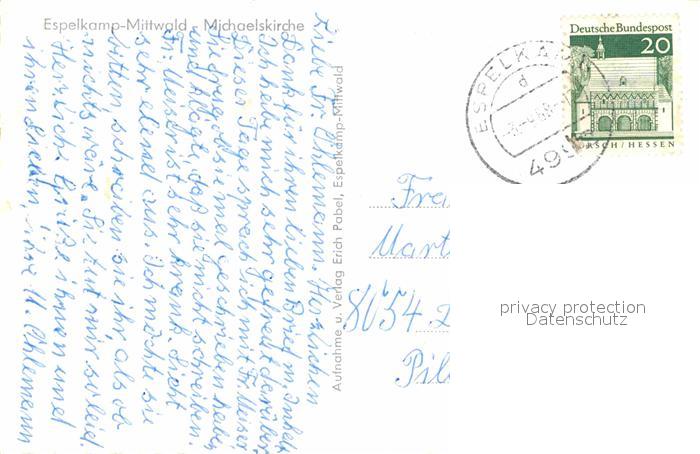 Espelkamp-Mittwald - Michaelskirche
Liebe Fr. Ohlemann. Herzlichen
Dank für ihren lieben Brief m. Inhalt
Ich habe mich sehr gefreut darüber
Dieser Tage sprach ich mit Fr. Meiser
die
und klagt, daß sie nicht schreiben.
Fr. Meisner ist sehr krank. Sieht
sehr elend aus. Ich möchte sie
bitten schreiben sie ihr als ob
nichts wäre. Sie tut mir so leid.
Herzliche Grüße ihnen und
ihren Lieben, ihre U. Ohlemann
Aufnahme u. Verlag Erich Pabel, Espelkamp-Mittwald
Deutsche Bundespost
20
LORSCH/HESSEN
ESPELKAMP
d
499
Frau
Mart
8054
Pil
privacy protection
Datenschutz